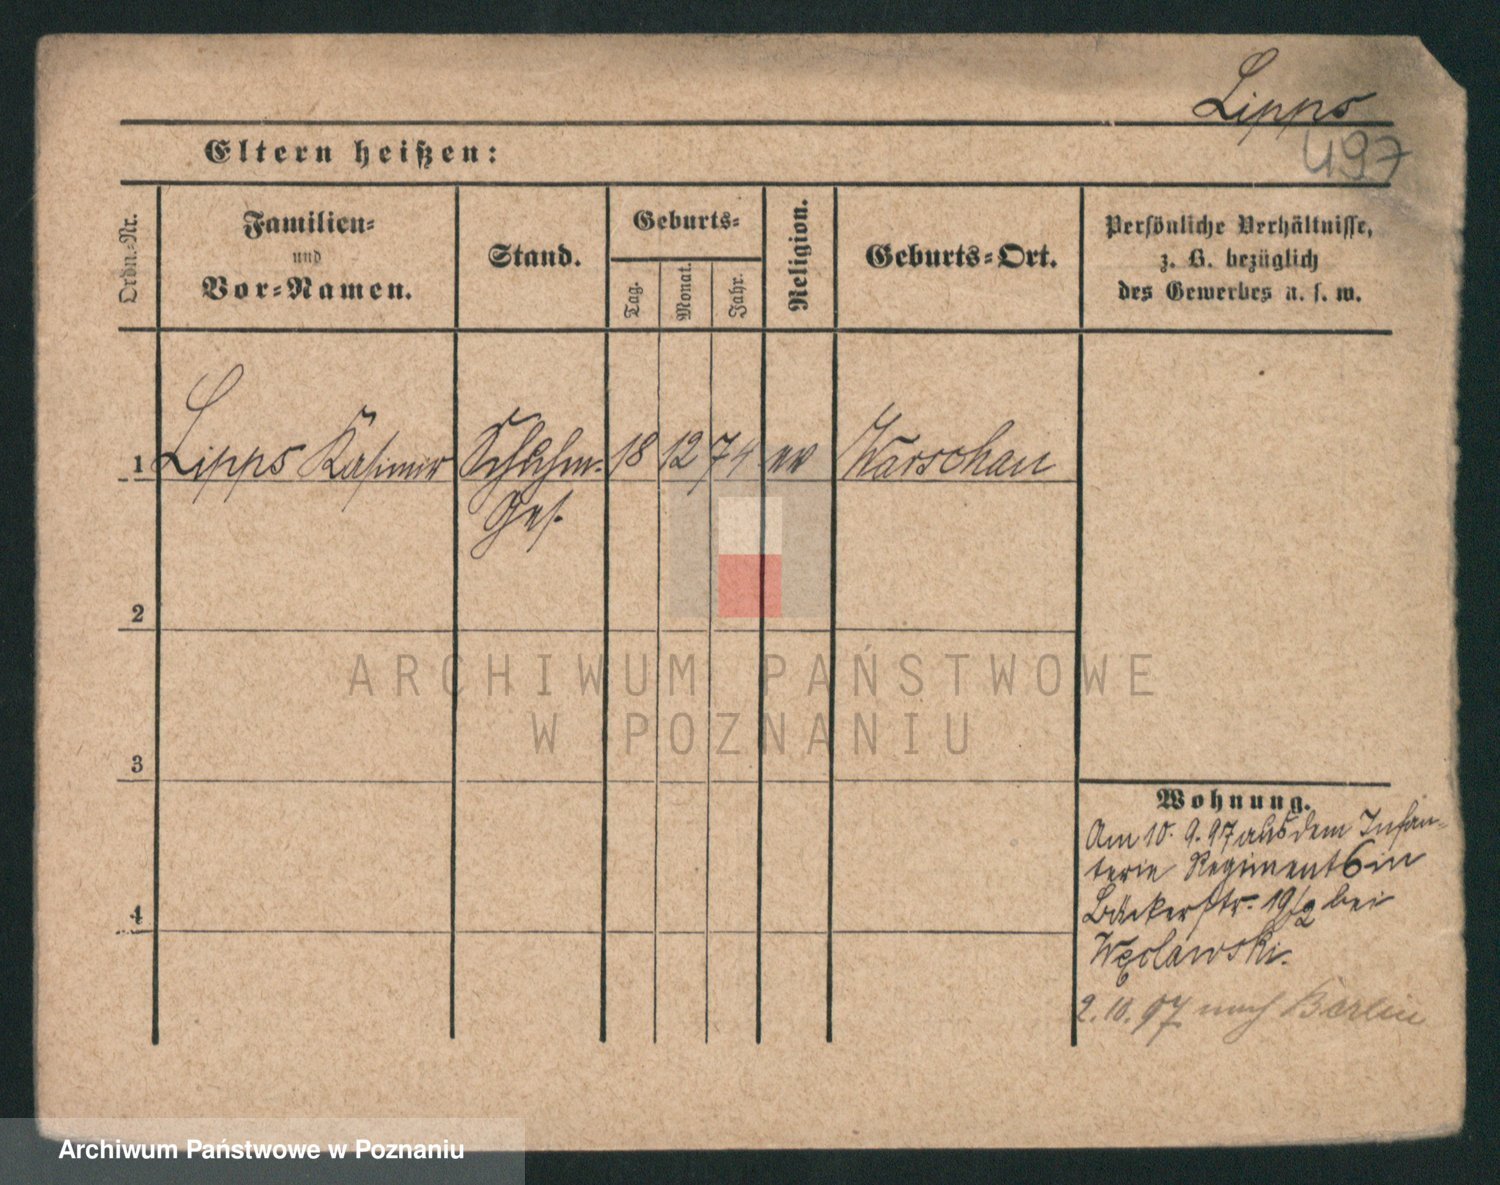 Lipps
497
Eltern heißen:
Ordn.-Nr.
Familien-
und
Vor-Namen.
Stand.
Geburts-
Tag.
Monat.
Jahr.
Religion.
Geburts-Ort.
Persönliche Verhältnisse,
z. B. bezüglich
des Gewerbes u. s. w.
1 Lipps Kasimir Schuhm. 18 12 74 ev Warschau
Ges.
2
3
4
Wohnung.
Am 10. 9. 97 aus dem Infan-
terie Regiment 6 in
Bäckerstr. 19/2 bei
Węclawski.
2. 10. 97 nach Berlin
ARCHIWUM PAŃSTWOWE
W POZNANIU
Archiwum Państwowe w Poznaniu